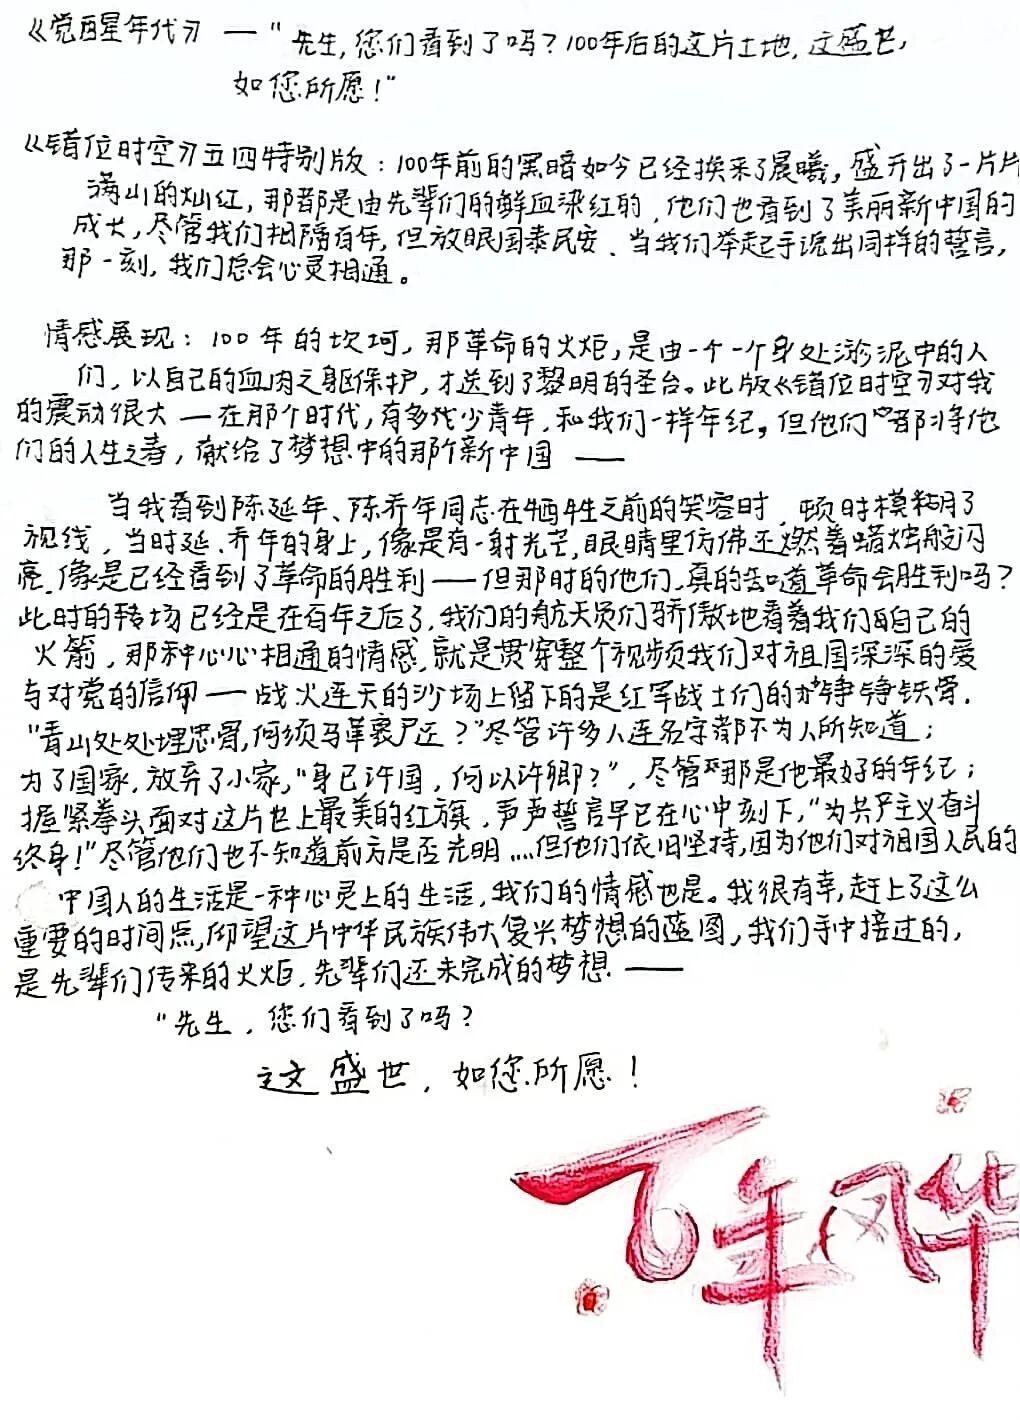 《觉醒年代》—"先生,您们看到了吗?100年后的这片土地,这盛世,
如您所愿!"
《错位时空》五四特别版:100年前的黑暗如今已经换来了晨曦,盛开出了一片片
满山的灿红,那都是由先辈们的鲜血染红的,他们也看到了美丽新中国的
成长,尽管我们相隔百年,但放眼国泰民安、当我们举起手说出同样的誓言,
那一刻,我们总会心灵相通。
情感展现:100年的坎坷,那革命的火炬,是由一个一个身处淤泥中的人
们,以自己的血肉之躯保护,才送到了黎明的圣台。此版《错位时空》对我
的震动很大—在那个时代,有多少少青年,和我们一样年纪,但他们都将他
们的人生之春,献给了梦想中的那个新中国——
当我看到陈延年、陈乔年同志在牺牲之前的笑容时,顿时模糊了
视线,当时延、乔年的身上,像是有一射光芒,眼睛里仿佛还燃着蜡烛般闪
亮.像是已经看到了革命的胜利——但那时的他们,真的知道革命会胜利吗?
此时的转场已经是在百年之后了,我们的航天员们骄傲地看着我们自己的
火箭,那种心心相通的情感,就是贯穿整个视频我们对祖国深深的爱
与对党的信仰——战火连天的沙场上留下的是红军战士们的铮铮铁骨.
"青山处处埋忠骨,何须马革裹尸还?"尽管许多人连名字都不为人所知道;
为了国家,放弃了小家,"身已许国,何以许卿?",尽管那是他最好的年纪;
握紧拳头面对这片世上最美的红旗,声声誓言早已在心中刻下,"为共产主义奋斗
终身!"尽管他们也不知道前方是否光明……但他们依旧坚持,因为他们对祖国人民的
中国人的生活是一种心灵上的生活,我们的情感也是。我很有幸,赶上了这么
重要的时间点,仰望这片中华民族伟大复兴梦想的蓝图,我们手中接过的,
是先辈们传来的火炬,先辈们还未完成的梦想——
"先生,您们看到了吗?
这盛世,如您所愿!
百年风华